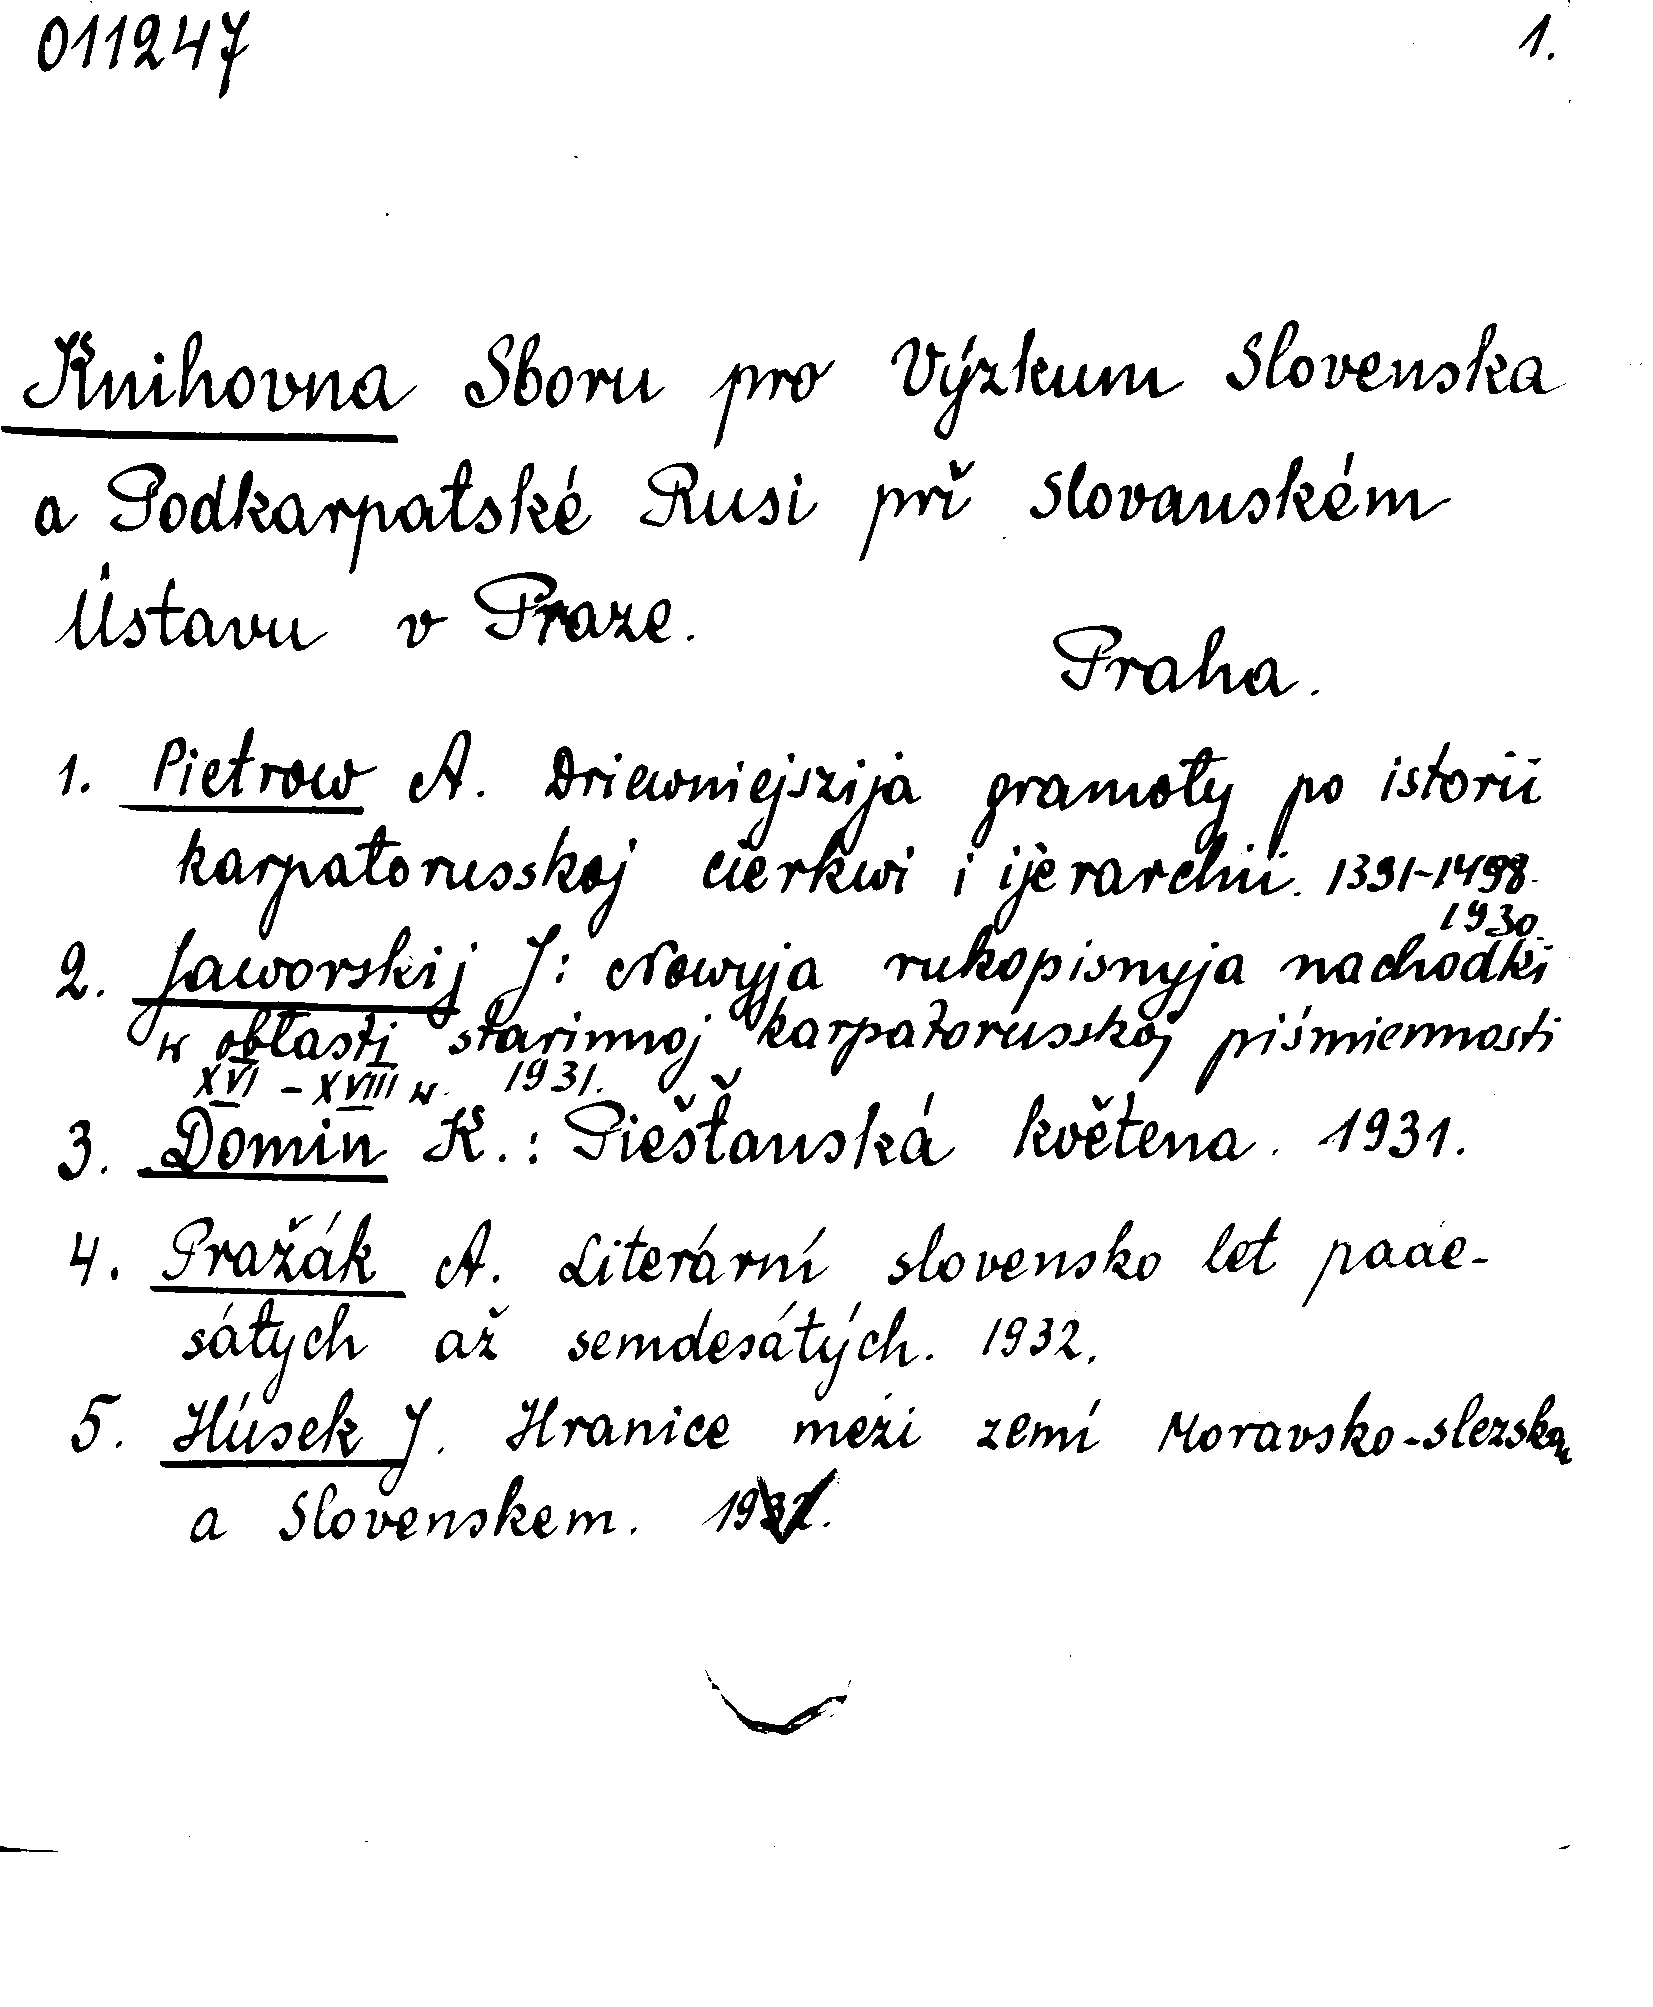 011247
1.
Knihovna Sboru pro Výzkum Slovenska
a Podkarpatské Rusi při Slovanském
Ústavu v Praze.
Praha.
1. Pietrow A. Driewniejszija gramoty po istorii
karpatorusskoj cierkwi i ijerarchii. 1391-1498.
1930.
2. Jaworskij J: Nowyja rukopisnyja nachodki
w obłasti starinnoj karpatorusskoj piśmiennosti
XVI - XVIII w. 1931.
3. Domin K.: Piešťanská květena. 1931.
4. Pražák A. Literární slovensko let paae-
sátych až semdesátých. 1932.
5. Húsek J. Hranice mezi zemí Moravsko-slezskou
a Slovenskem.